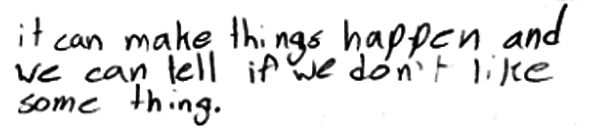 it can make things happen and
we can tell if we don't like
some thing.